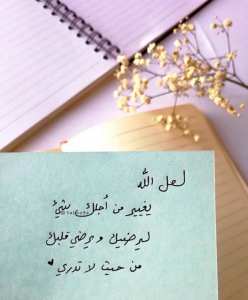 لعل الله
يغير من أجلك شيئ
ليرضيك و يرضي قلبك
من حيث لا تدري